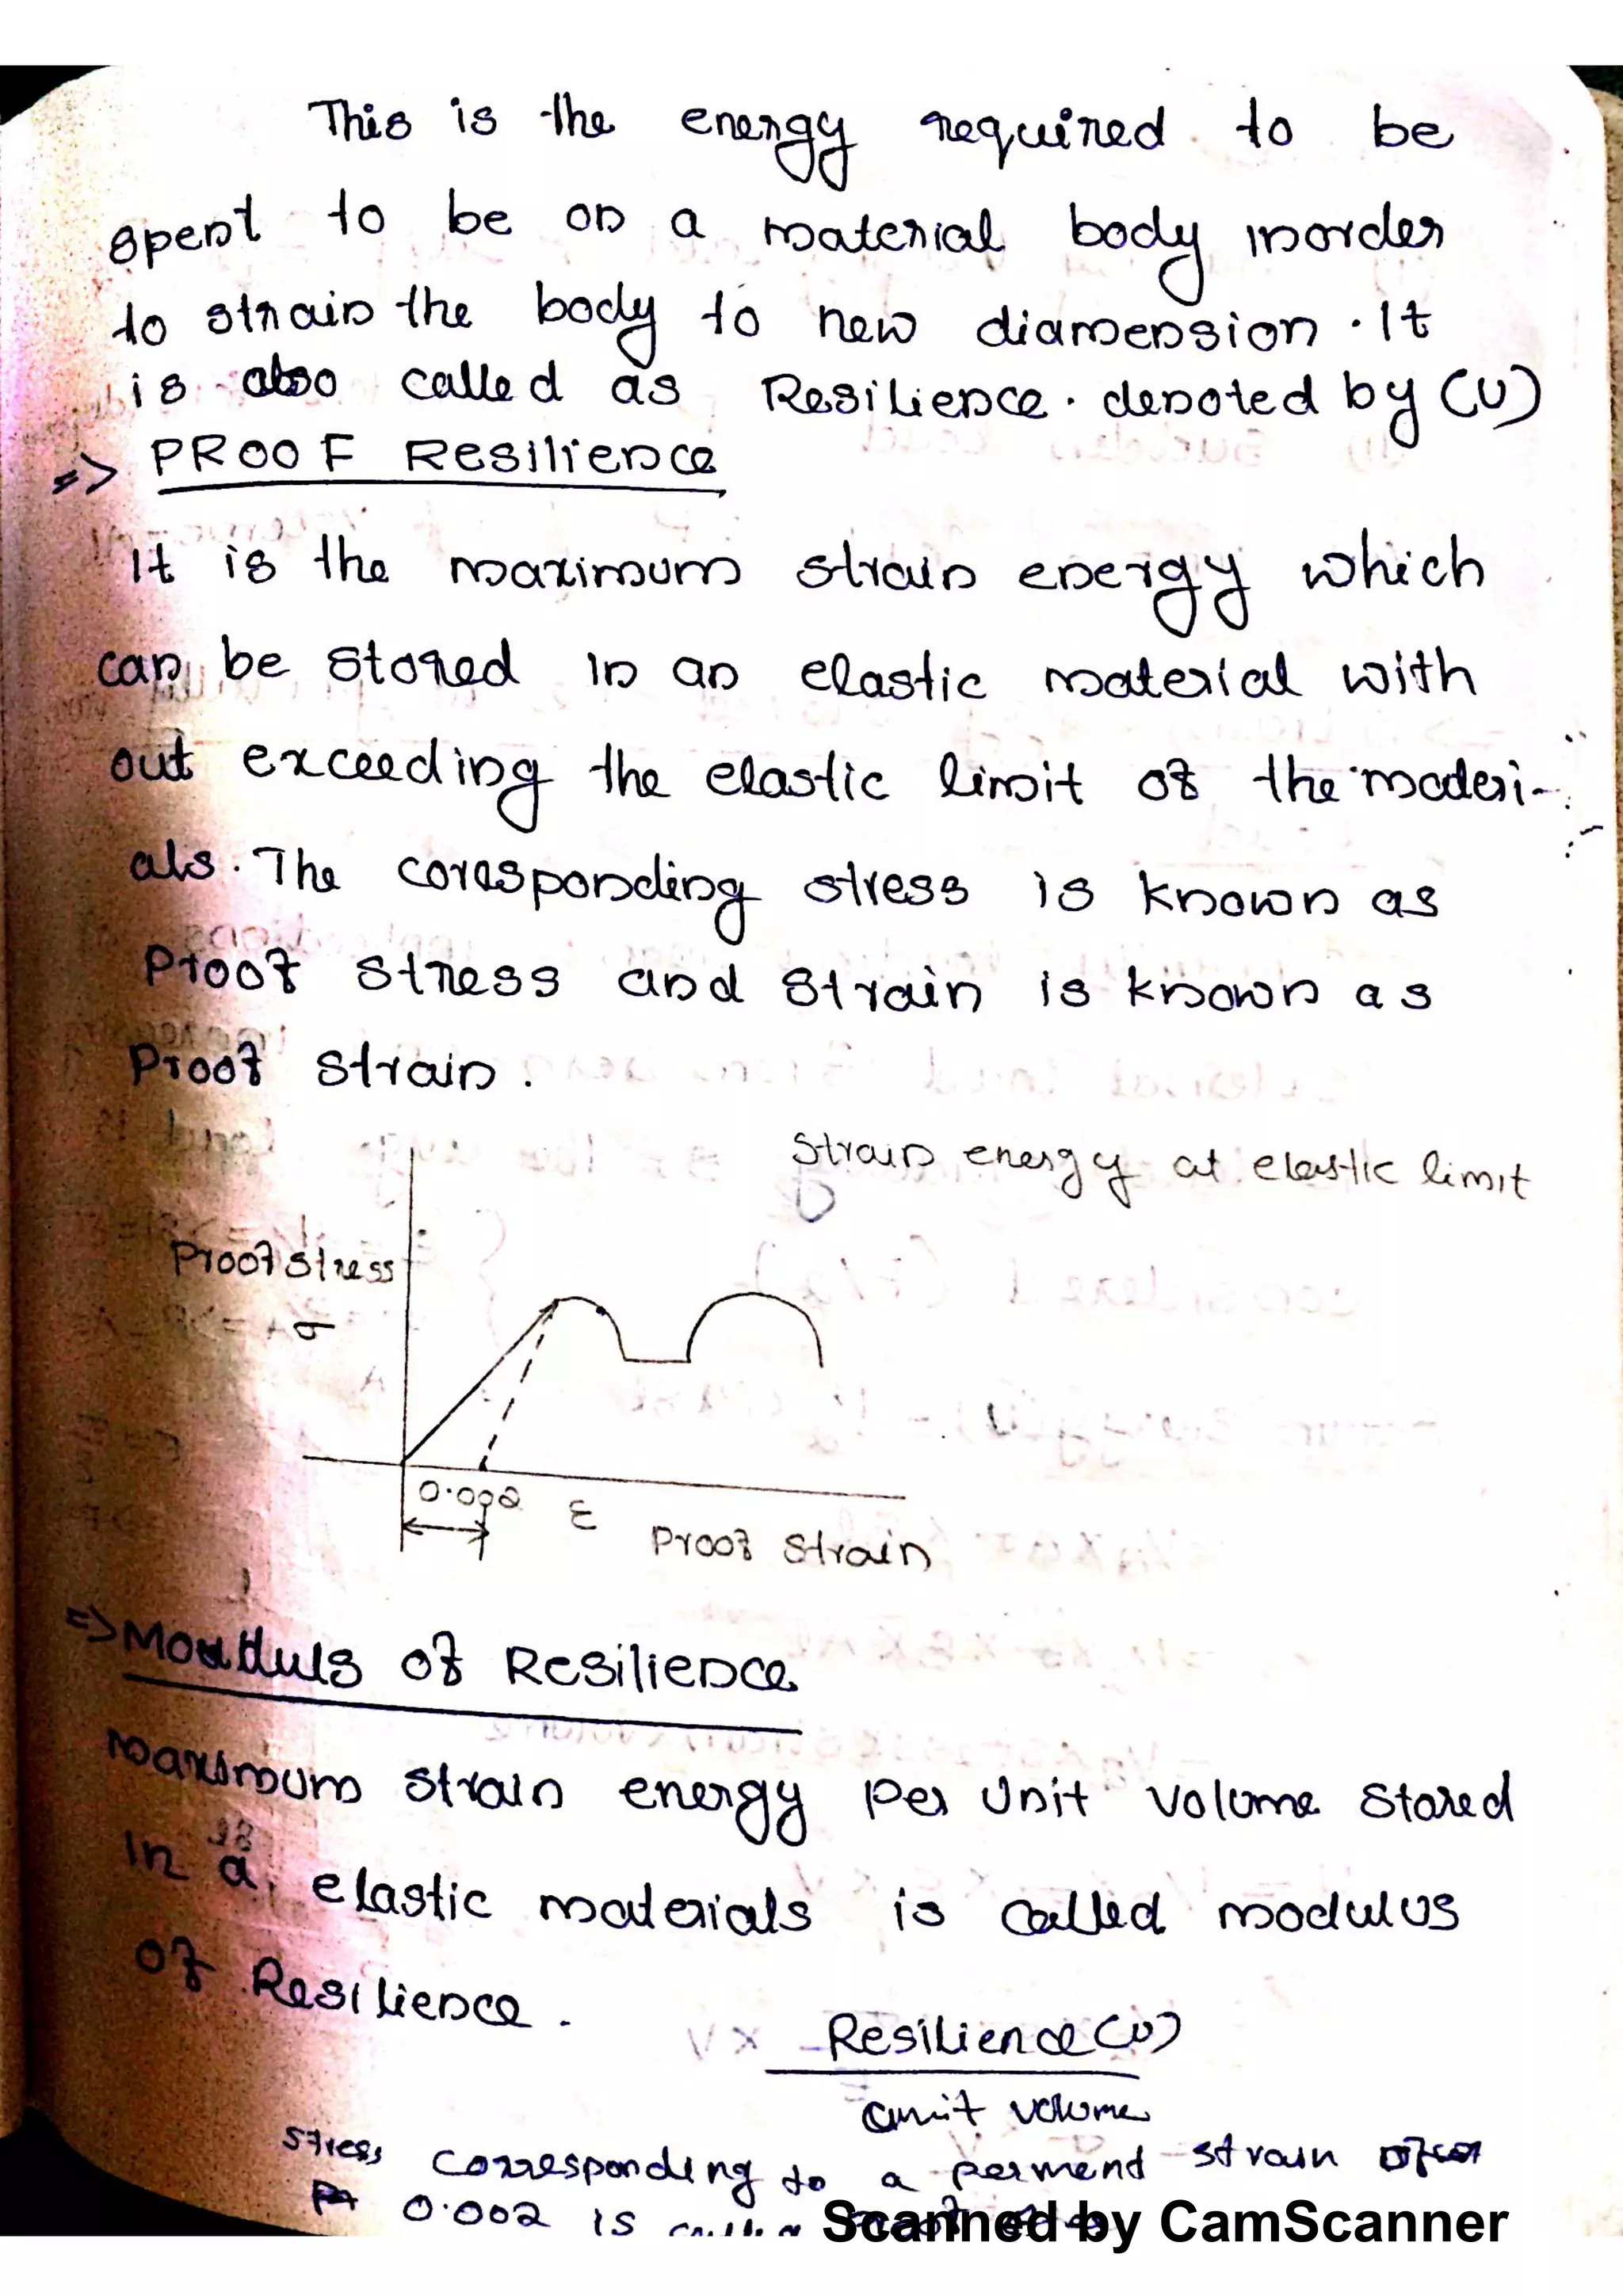 This is the energy required to be
spent to be on a material body inorder
to strain the body to new diamension . It
is also called as Resilience . denoted by (U)
=> PROOF Resilience
It is the maximum strain energy which
can be stored in an elastic material with
out exceeding the elastic limit of the materi-
als . The coresponding stress is known as
Proof stress and strain is known as
Proof strain .
Strain energy at elastic limit
Proof stress
σ
0.002 ε Proof strain
=> Modululs of Resilience
maximum strain energy per unit volume stored
in a elastic materials is called modulus
of Resilience .
Resilience (U)
unit volume
stress corresponding to a perment strain of
0.002 is
Scanned by CamScanner